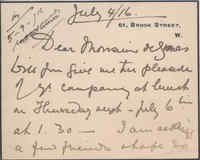 July 4/16.
51, BROOK STREET,
W.
Dear Monsieur de
Will you give me the pleasure
of yr company at lunch
on Thursday next - July 6th
at 1.30 - I am asking
a few friends